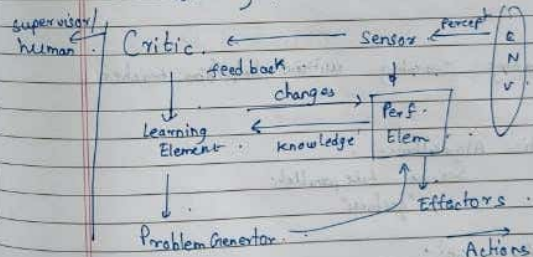 supervisor/
human.
Critic.
Sensor
Percept
E
N
V
feed back
changes
Learning
Element.
Knowledge
Perf.
Elem.
Effectors.
Problem Genertor.
Actions